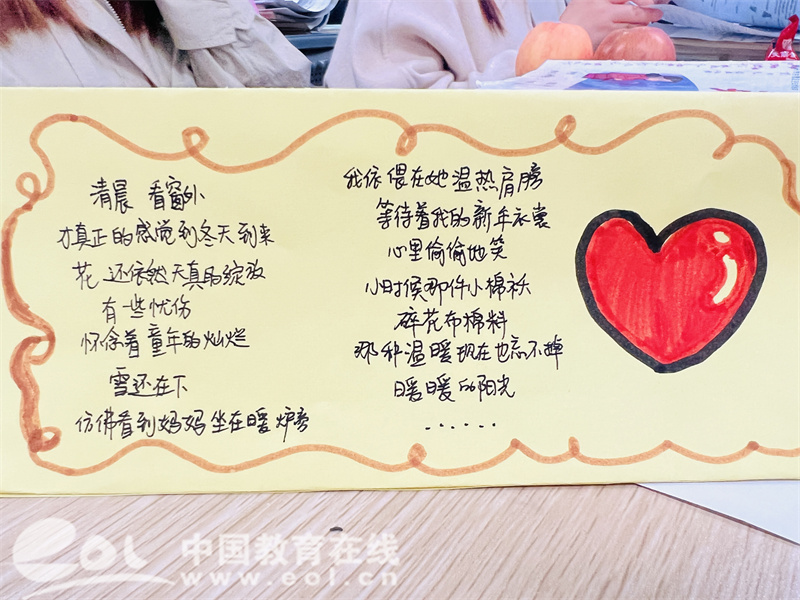 清晨 看窗外
才真正的感觉到冬天到来
花 还依然天真的绽放
有一些忧伤
怀念着童年的灿烂
雪还在下
仿佛看到妈妈坐在暖炉旁
我依偎在她温热肩膀
等待着我的新年衣裳
心里偷偷地笑
小时候那件小棉袄
碎花布棉料
那种温暖现在也忘不掉
暖暖的阳光
......
eol 中国教育在线
www.eol.cn